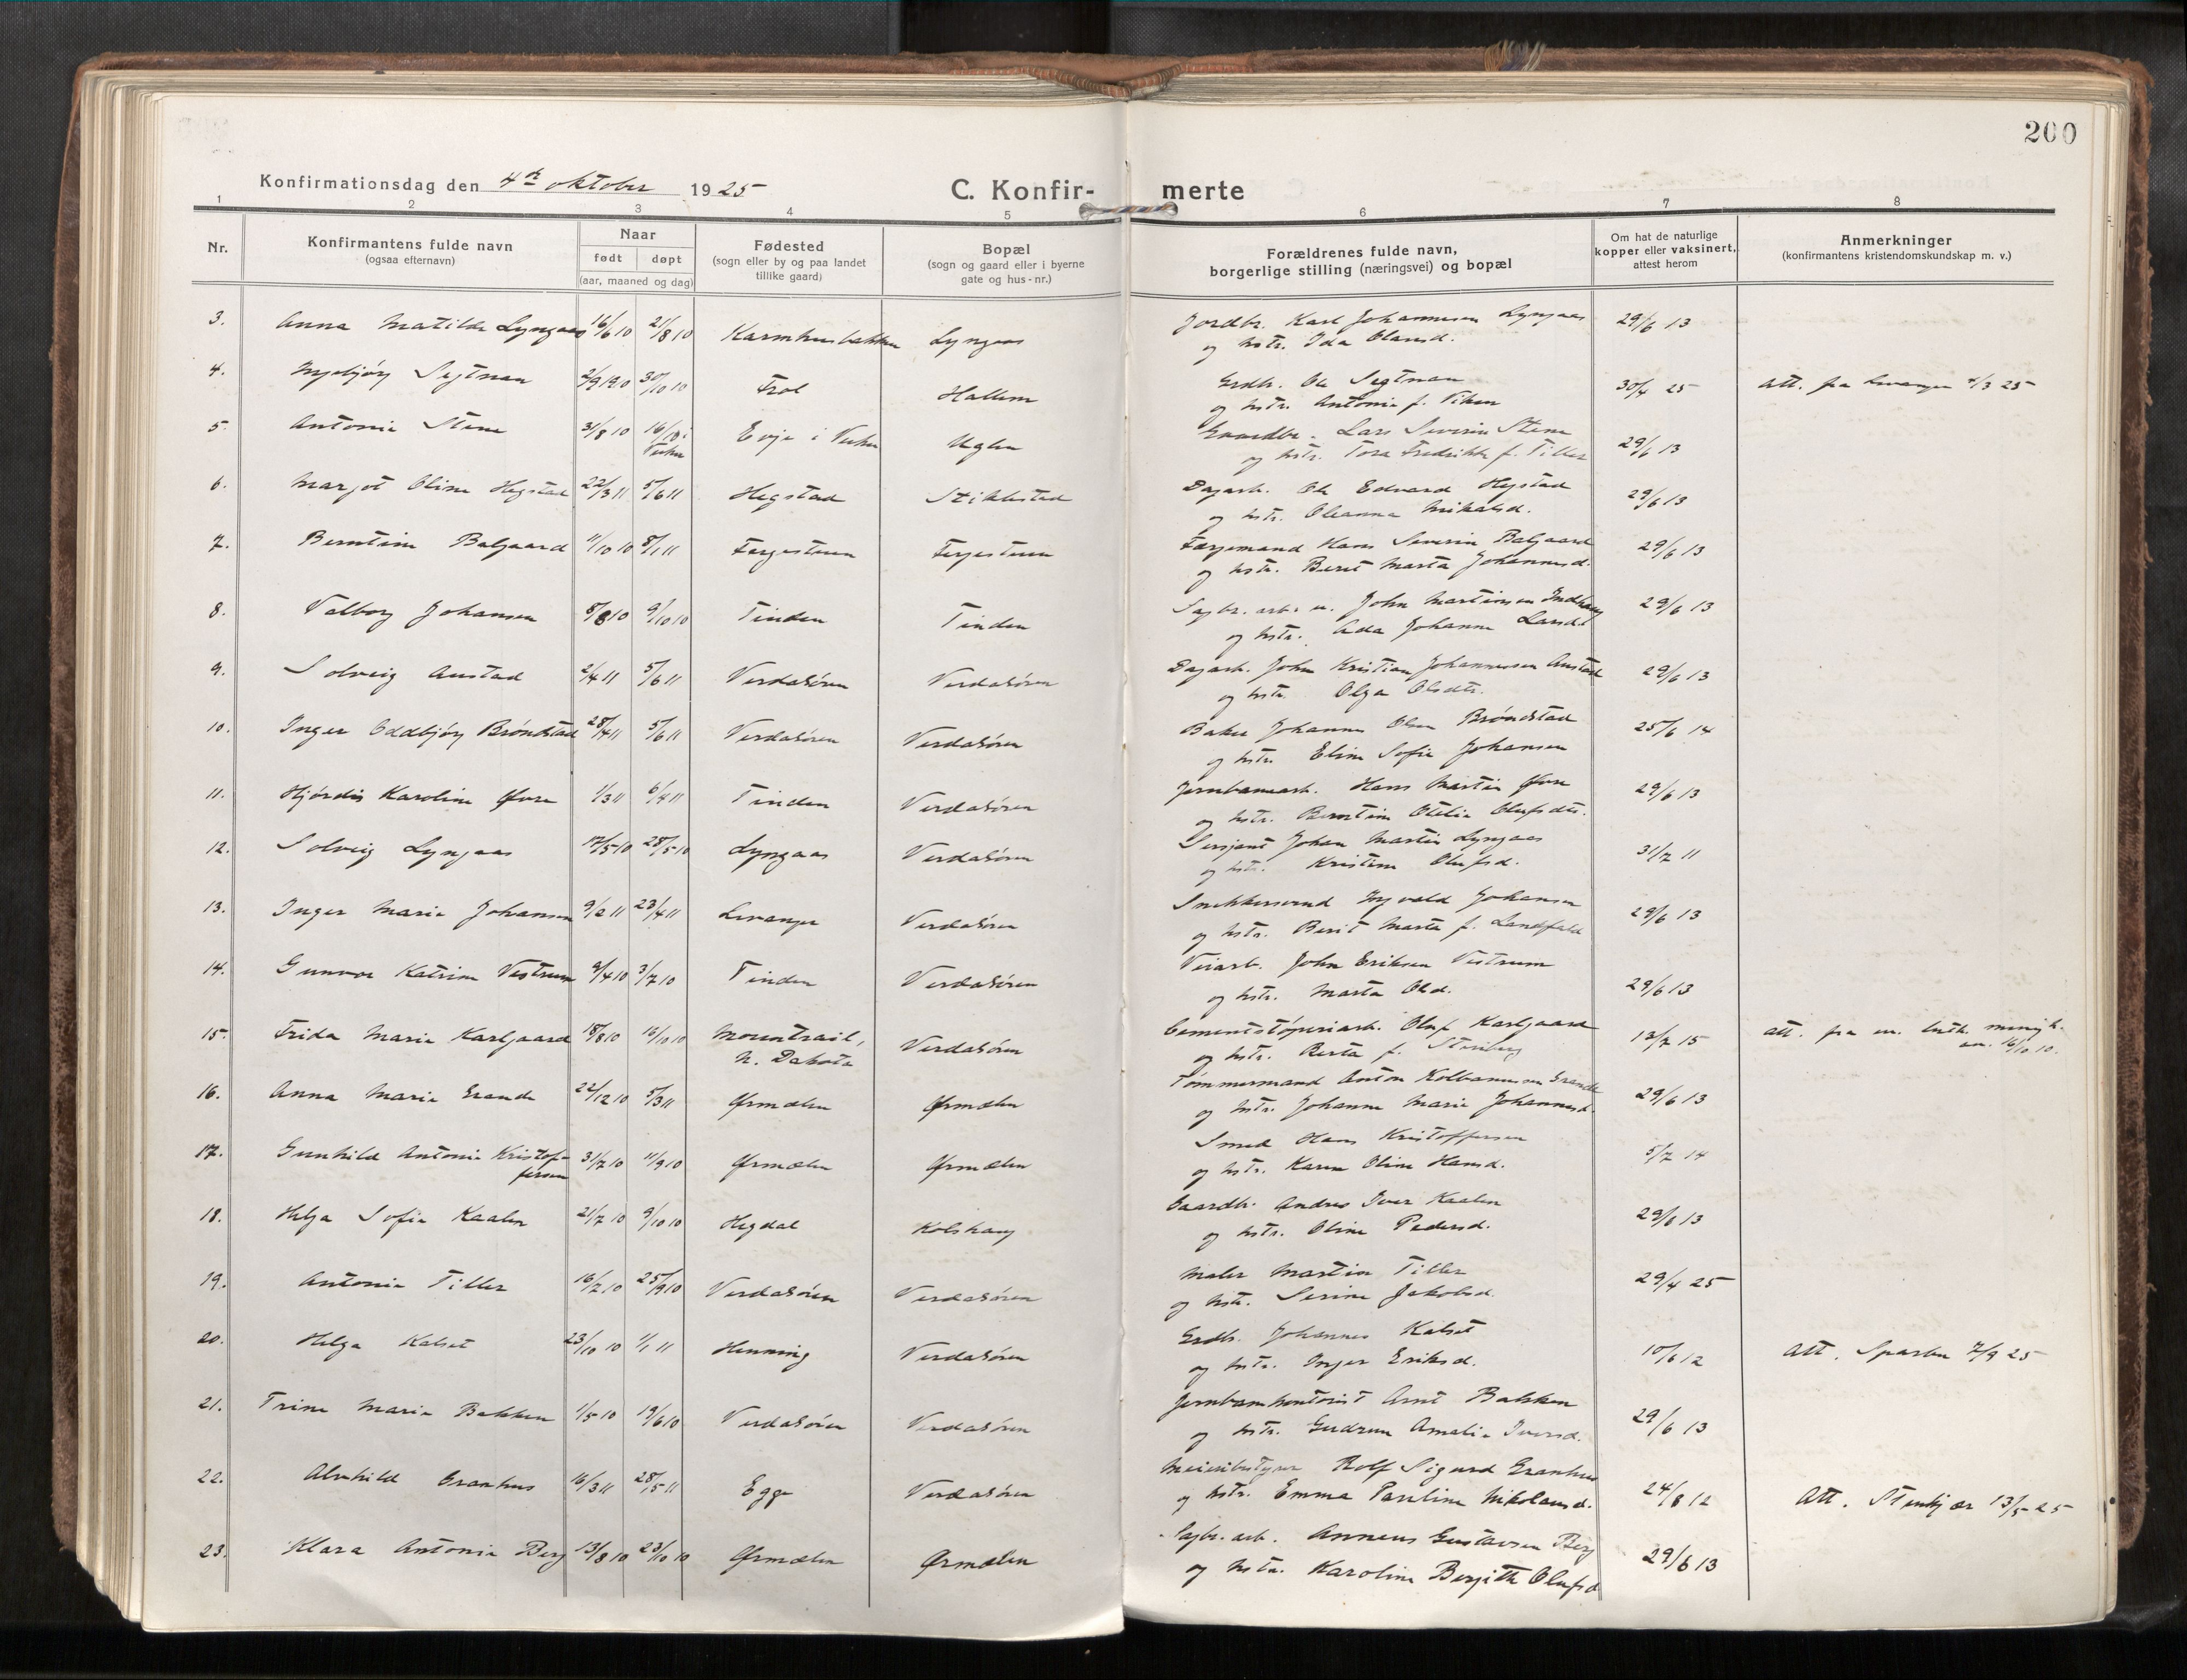 200
Konfirmationsdag den 4de oktober 1925
C. Konfir- merte
1 2 3 4 5 6 7 8
Nr.
Konfirmantens fulde navn
(ogsaa efternavn)
Naar
født døpt
(aar, maaned og dag)
Fødested
(sogn eller by og paa landet
tillike gaard)
Bopæl
(sogn og gaard eller i byerne
gate og hus-nr.)
Forældrenes fulde navn,
borgerlige stilling (næringsvei) og bopæl
Om hat de naturlige
kopper eller vaksinert,
attest herom
Anmerkninger
(konfirmantens kristendomskundskap m. v.)
3. Anna Matilde Lyngaas 16/6 10 21/8 10 Karmhusbakken Lyngaas Jordbr. Karl Johannesen Lyngaas 29/6 13
og hstr. Ida Olausd.
4. Ingebjørg Segtnan 2/9 1910 30/10 10 Frol Hallem Grdbr. Ole Segtnan 30/4 25 Att. fra Levanger 3 25
og hstr. Antonie f. Viken
5. Antonie Stene 31/8 10 16/10 i Evje i Vuku Uglen Gaardbr. Lars Severin Stene 29/6 13
Vuku og hstr. Tora Fredrikke f. Tiller
6. Margot Oline Hegstad 22/3 11 5/6 11 Hegstad Stiklestad Dagarb. Ole Edvard Hegstad 29/6 13
og hstr. Oleanna Mikalsd.
7. Berntine Balgaard 11/10 10 8/1 11 Fergestuen Fergestuen Færgemand Hans Severin Balgaard 29/6 13
og hstr. Beret Marta Johannesd.
8. Valborg Johansen 5/8 10 9/10 10 Tinden Tinden Sagbr. arb. John Martinsen Indhaug 29/6 13
og hstr. Ada Johanne Larsd.
9. Solveig Austad 2/4 11 5/6 11 Verdalsøren Verdalsøren Dagarb. John Kristian Johannessen Austad 29/6 13
og hstr. Olga Olsdtr.
10. Inger Oddbjørg Brøndstad 28/4 11 5/6 11 Verdalsøren Verdalsøren Baker Johannes Olsen Brøndstad 25/6 14
og hstr. Eline Sofie Johansen
11. Hjørdis Karoline Øvre 1/3 11 6/4 11 Tinden Verdalsøren Jernbanearb. Hans Martin Øvre 29/6 13
og hstr. Berntine Otelie Olufsdtr.
12. Solveig Lyngaas 17/5 10 28/5 10 Lyngaas Verdalsøren Sersjant Johan Martin Lyngaas 31/7 11
og hstr. Kristine Olufsd.
13. Inger Marie Johansen 9/2 11 23/4 11 Levanger Verdalsøren Snekkersvend Ingvald Johansen 29/6 13
og hstr. Berit Marta f. Landfald
14. Gunvor Katrine Vestrum 9/4 10 3/7 10 Tinden Verdalsøren Veiarb. John Eriksen Vestrum 29/6 13
og hstr. Marta Olsd.
15. Frida Marie Karlgaard 18/8 10 16/10 10 Mountrail, Verdalsøren Cementstøperiarb. Oluf Karlgaard 13/7 15 Att. fra en luth. menigh.
N. Dakota og hstr. Berta f. Steinberg am. 16/10 10.
16. Anna Marie Grande 22/12 10 5/3 11 Ørmelen Ørmelen Tømmermand Anton Kolbanussen Grande 29/6 13
og hstr. Johanna Marie Johannesd.
17. Gunhild Antonie Kristof- 31/7 10 11/9 10 Ørmelen Ørmelen Smed Hans Kristoffersen 5/7 14
fersen og hstr. Karen Oline Hansd.
18. Helga Sofie Kaalen 21/7 10 9/10 10 Hegdal Kolshaug Gaardbr. Andreas Iver Kaalen 29/6 13
og hstr. Oline Pedersd.
19. Antonie Tiller 16/7 10 25/9 10 Verdalsøren Verdalsøren Maler Martin Tiller 29/4 25
og hstr. Serine Jakobsd.
20. Helga Kalset 23/10 10 1/1 11 Henning Verdalsøren Grdbr. Johannes Kalset 10/6 12 Att. Sparbu 7/9 25
og hstr. Inger Eriksd.
21. Trine Marie Bakken 1/5 10 19/6 10 Verdalsøren Verdalsøren Jernbanekontorist Arnt Bakken 29/6 13
og hstr. Gudrun Amalie Iversd.
22. Alvhild Granhus 16/3 11 28/5 11 Egge Verdalsøren Meieribestyrer Rolf Sigurd Granhus 24/8 12 Att. Stenkjær 13/5 25
og hstr. Emma Pauline Nikolausd.
23. Klara Antonie Berg 13/8 10 23/10 10 Ørmelen Ørmelen Sagbr. arb. Anneus Gustavsen Berg 29/6 13
og hstr. Karoline Bergitte Olufsd.